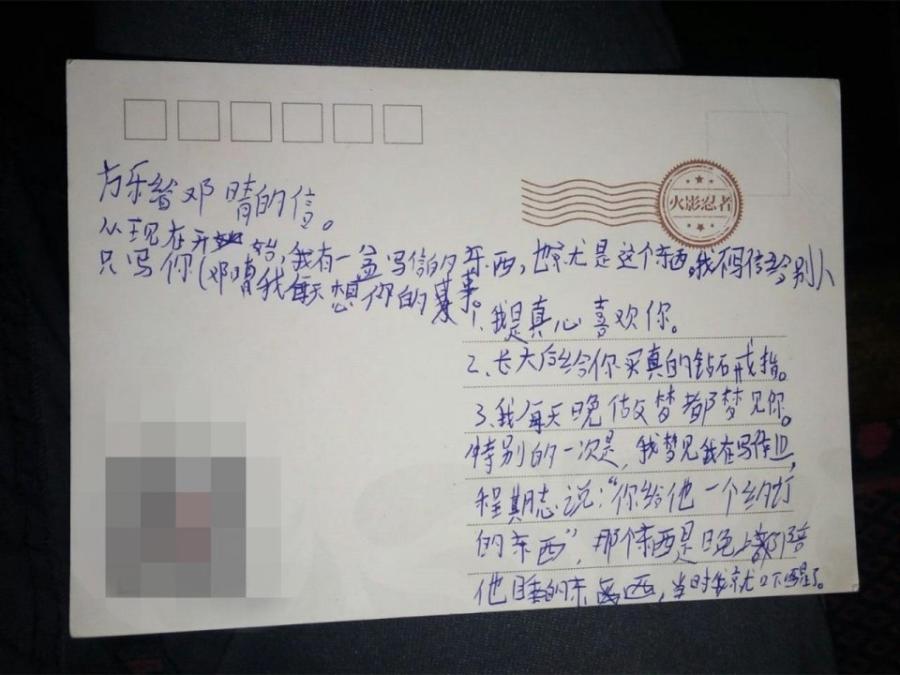 方乐给邓晴的信。
火影忍者
从现在开始,我有一盒写信的东西,也就是这个东西。我不写信给别人
只写你(邓晴我每天想你的某某。
1、我是真心喜欢你。
2、长大后给你买真的钻石戒指。
3、我每天晚做梦都梦见你。
特别的一次是,我梦见我在写作业,
程期志说:“你给他一个约盯
的东西”,那个东西是晚上都陪
他睡的东西,当时我就吓醒了。